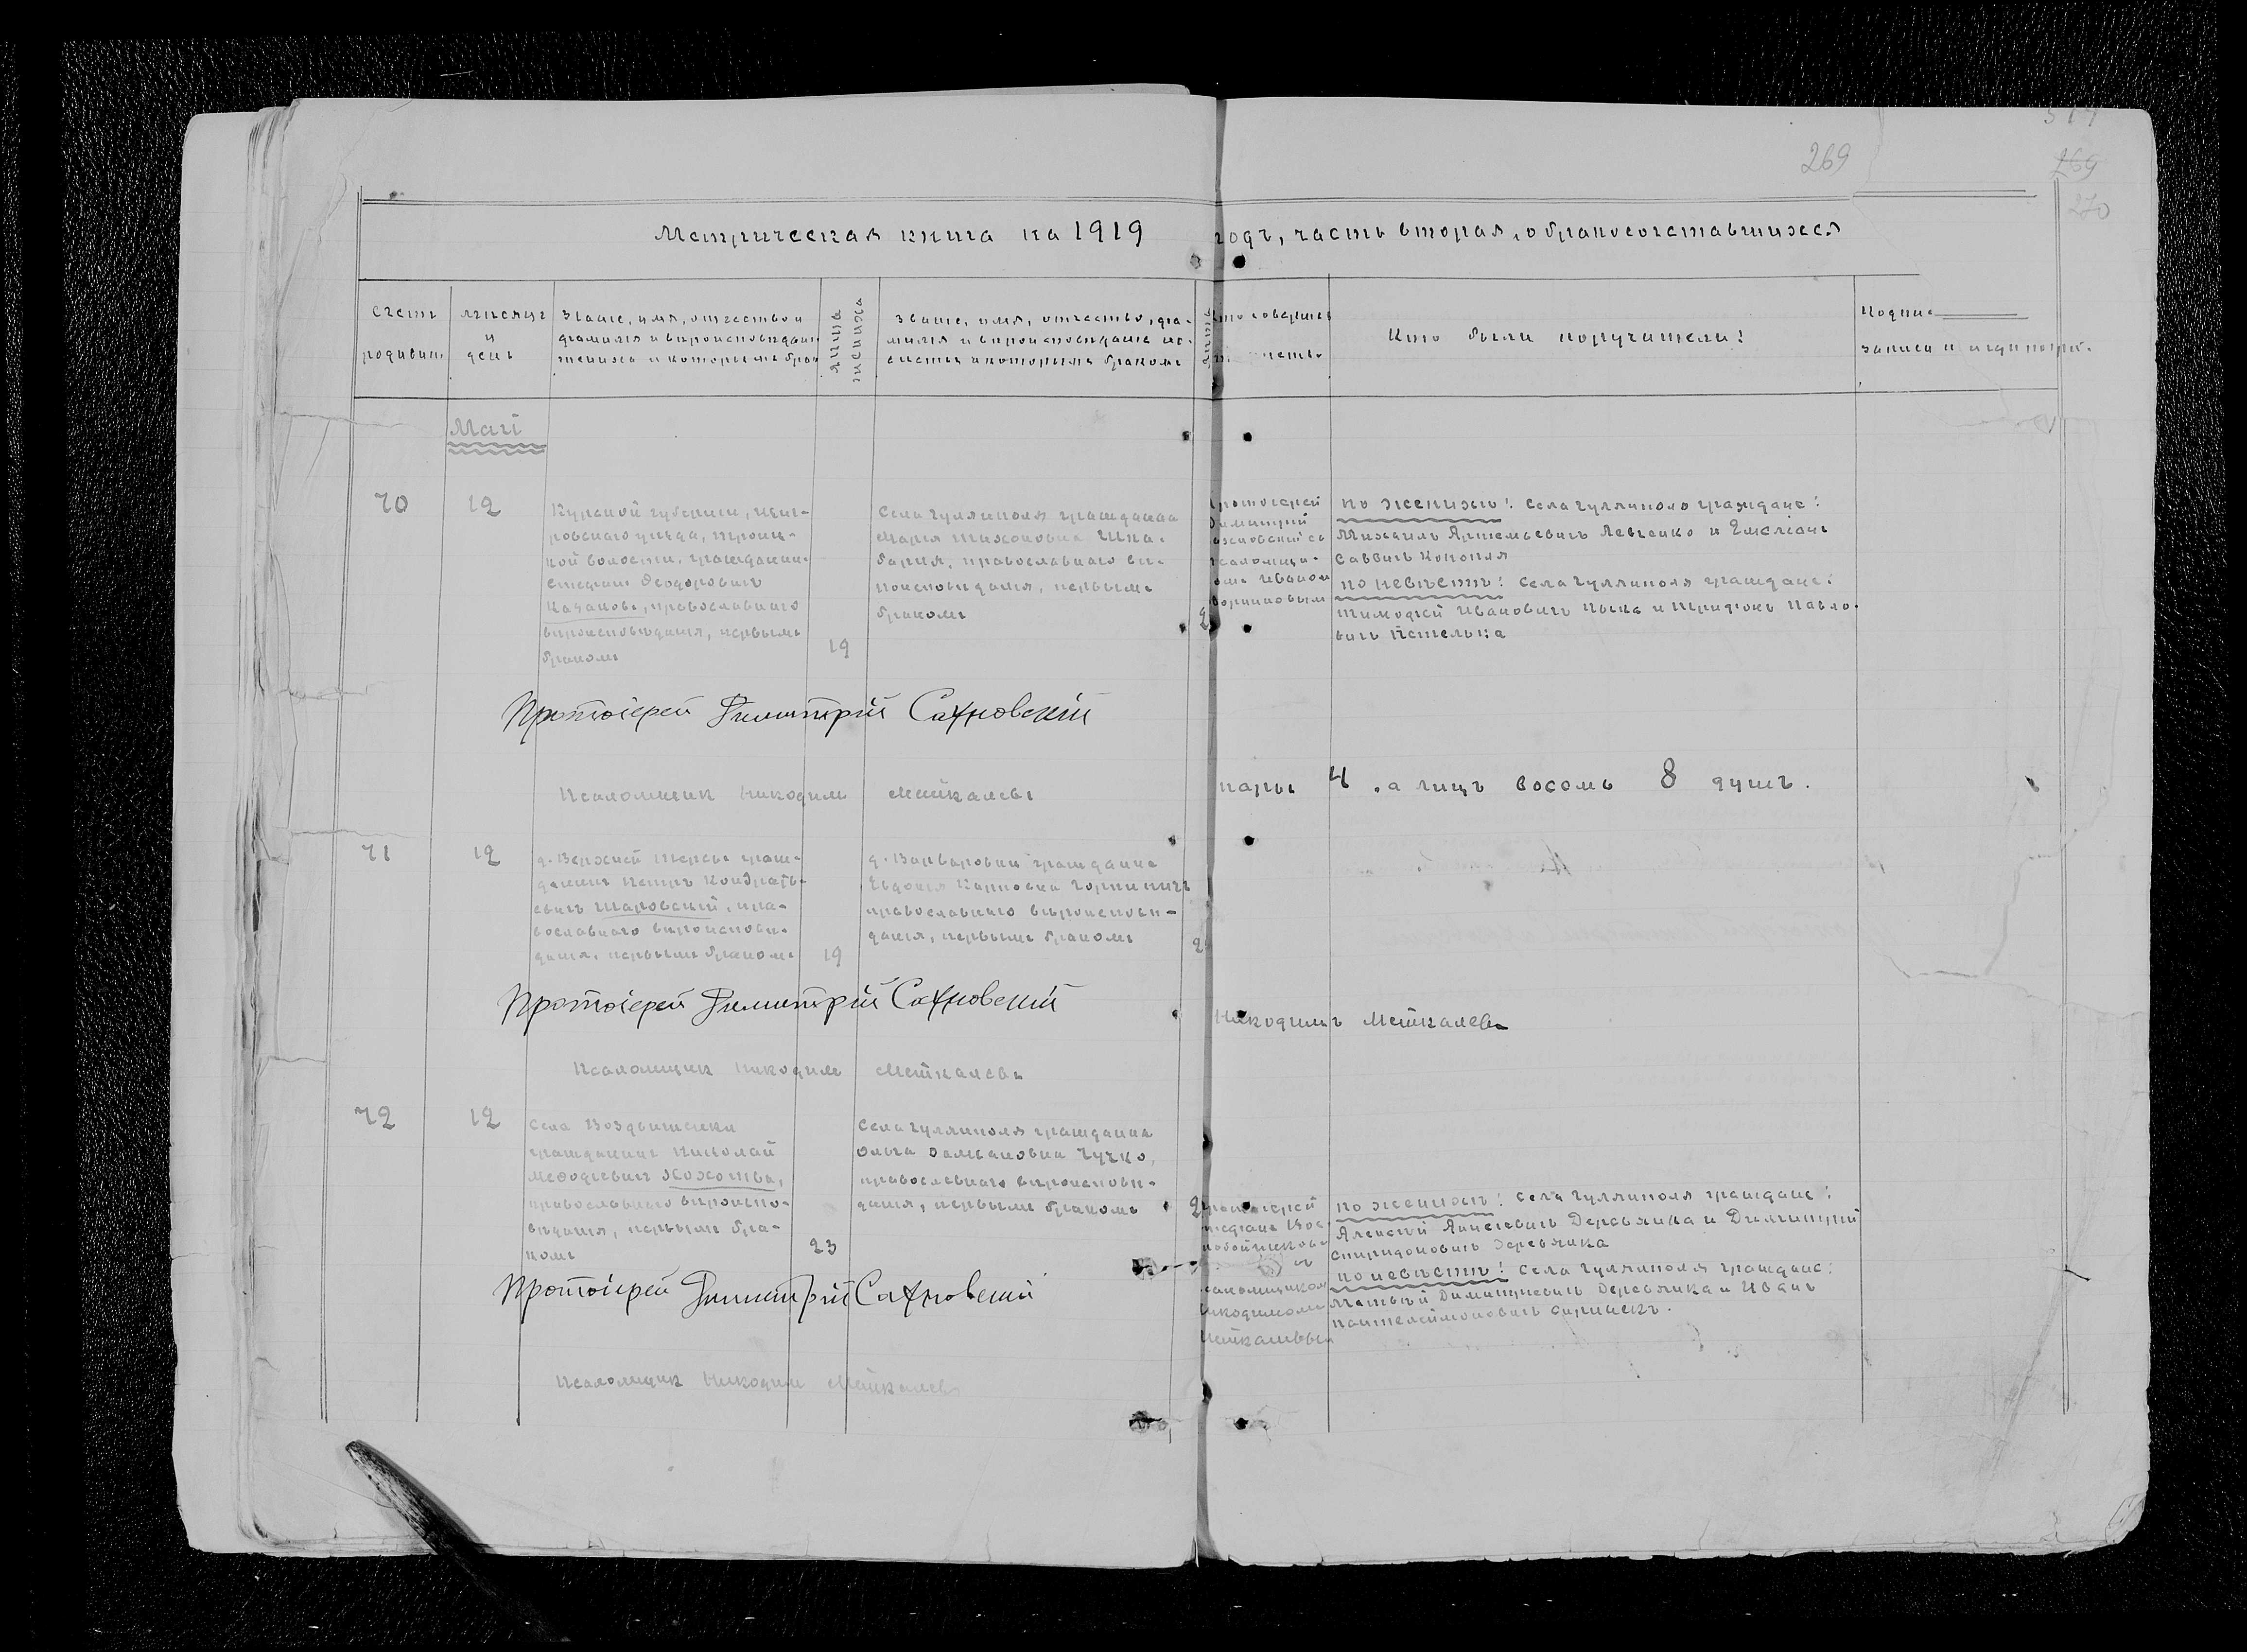 269
269
270
Метрическая книга на 1919 годъ, часть вторая, о бракосочетавшихся
Счетъ родивш
мѣсяцъ и день
Званіе, имя, отчество и
фамилія и вѣроисповѣданіе
жениха и которымъ брак
Лѣта жениха
Званіе, имя, отчество, фа-
милія и вѣроисповѣданіе не-
вѣсты и которымъ бракомъ
Лѣта
то совершил
Кто были поручатели:
Подпис
записи и
Маій
70
12
Курской губерніи, щиг-
ровскаго уѣзда, троиц-
кой волости, гражданинъ
Стефанъ Ѳеодоровичъ
Казаковъ, православнаго
вѣроисповѣданія, первымъ
бракомъ
19
Села Гуляйполя гражданка
Марія Тихоновна Шка-
барня, православнаго вѣ-
роисповѣданія, первымъ
бракомъ
2
ротоіерей
имитрій
ахновскій съ
саломщи-
омъ Иваном
по женихѣ: Села Гуляйполя граждане:
Михаилъ Артемьевичъ Левченко и Емеліанъ
Саввичъ Конопля
по невѣстѣ: Села Гуляйполя граждане:
Тимофей Ивановичъ Пыка и Трифонъ Павло-
вичъ Петелька
Протоіерей Димитрій Сахновскій
Псаломщик Никодимъ Меткалевъ
пары 4, а лицъ восемь 8 душъ.
71
12
д. Верхней Терсы граж-
данинъ Петръ Кондрать-
евичъ Шаровскій, пра-
вославнаго вѣроисповѣ-
данія, первымъ бракомъ
19
д. Варваровки гражданка
Евдокія Карповна Горпиничъ
православнаго вѣроисповѣ-
данія, первымъ бракомъ
2
Протоіерей Димитрій Сахновскій
Никодимъ Меткалевъ
Псаломщик Никодим Меткалевъ
72
12
Села Воздвиженки
гражданинъ Николай
Меѳодіевичъ Хохотва,
православнаго вѣроиспо-
вѣданія, первымъ бра-
комъ
23
Села Гуляйполя гражданка
Ольга Дамьановна Чучко,
православнаго вѣроисповѣ-
данія, первымъ бракомъ
2
ротоіерей
тефанъ Вос-
кобойниковъ
и
саломщиком
икодимомъ
Меткалевым
по женихѣ: Села Гуляйполя граждане:
Алексій Алексіевичъ Деревянка и Димитрій
Спиридоновичъ Деревянка
по невѣстѣ: Села Гуляйполя граждане:
Матвѣй Димитріевичъ Деревянка и Иванъ
Пантелеймоновичъ
Протоіерей Димитрій Сахновскій
Псаломщик Никодим Меткалевъ